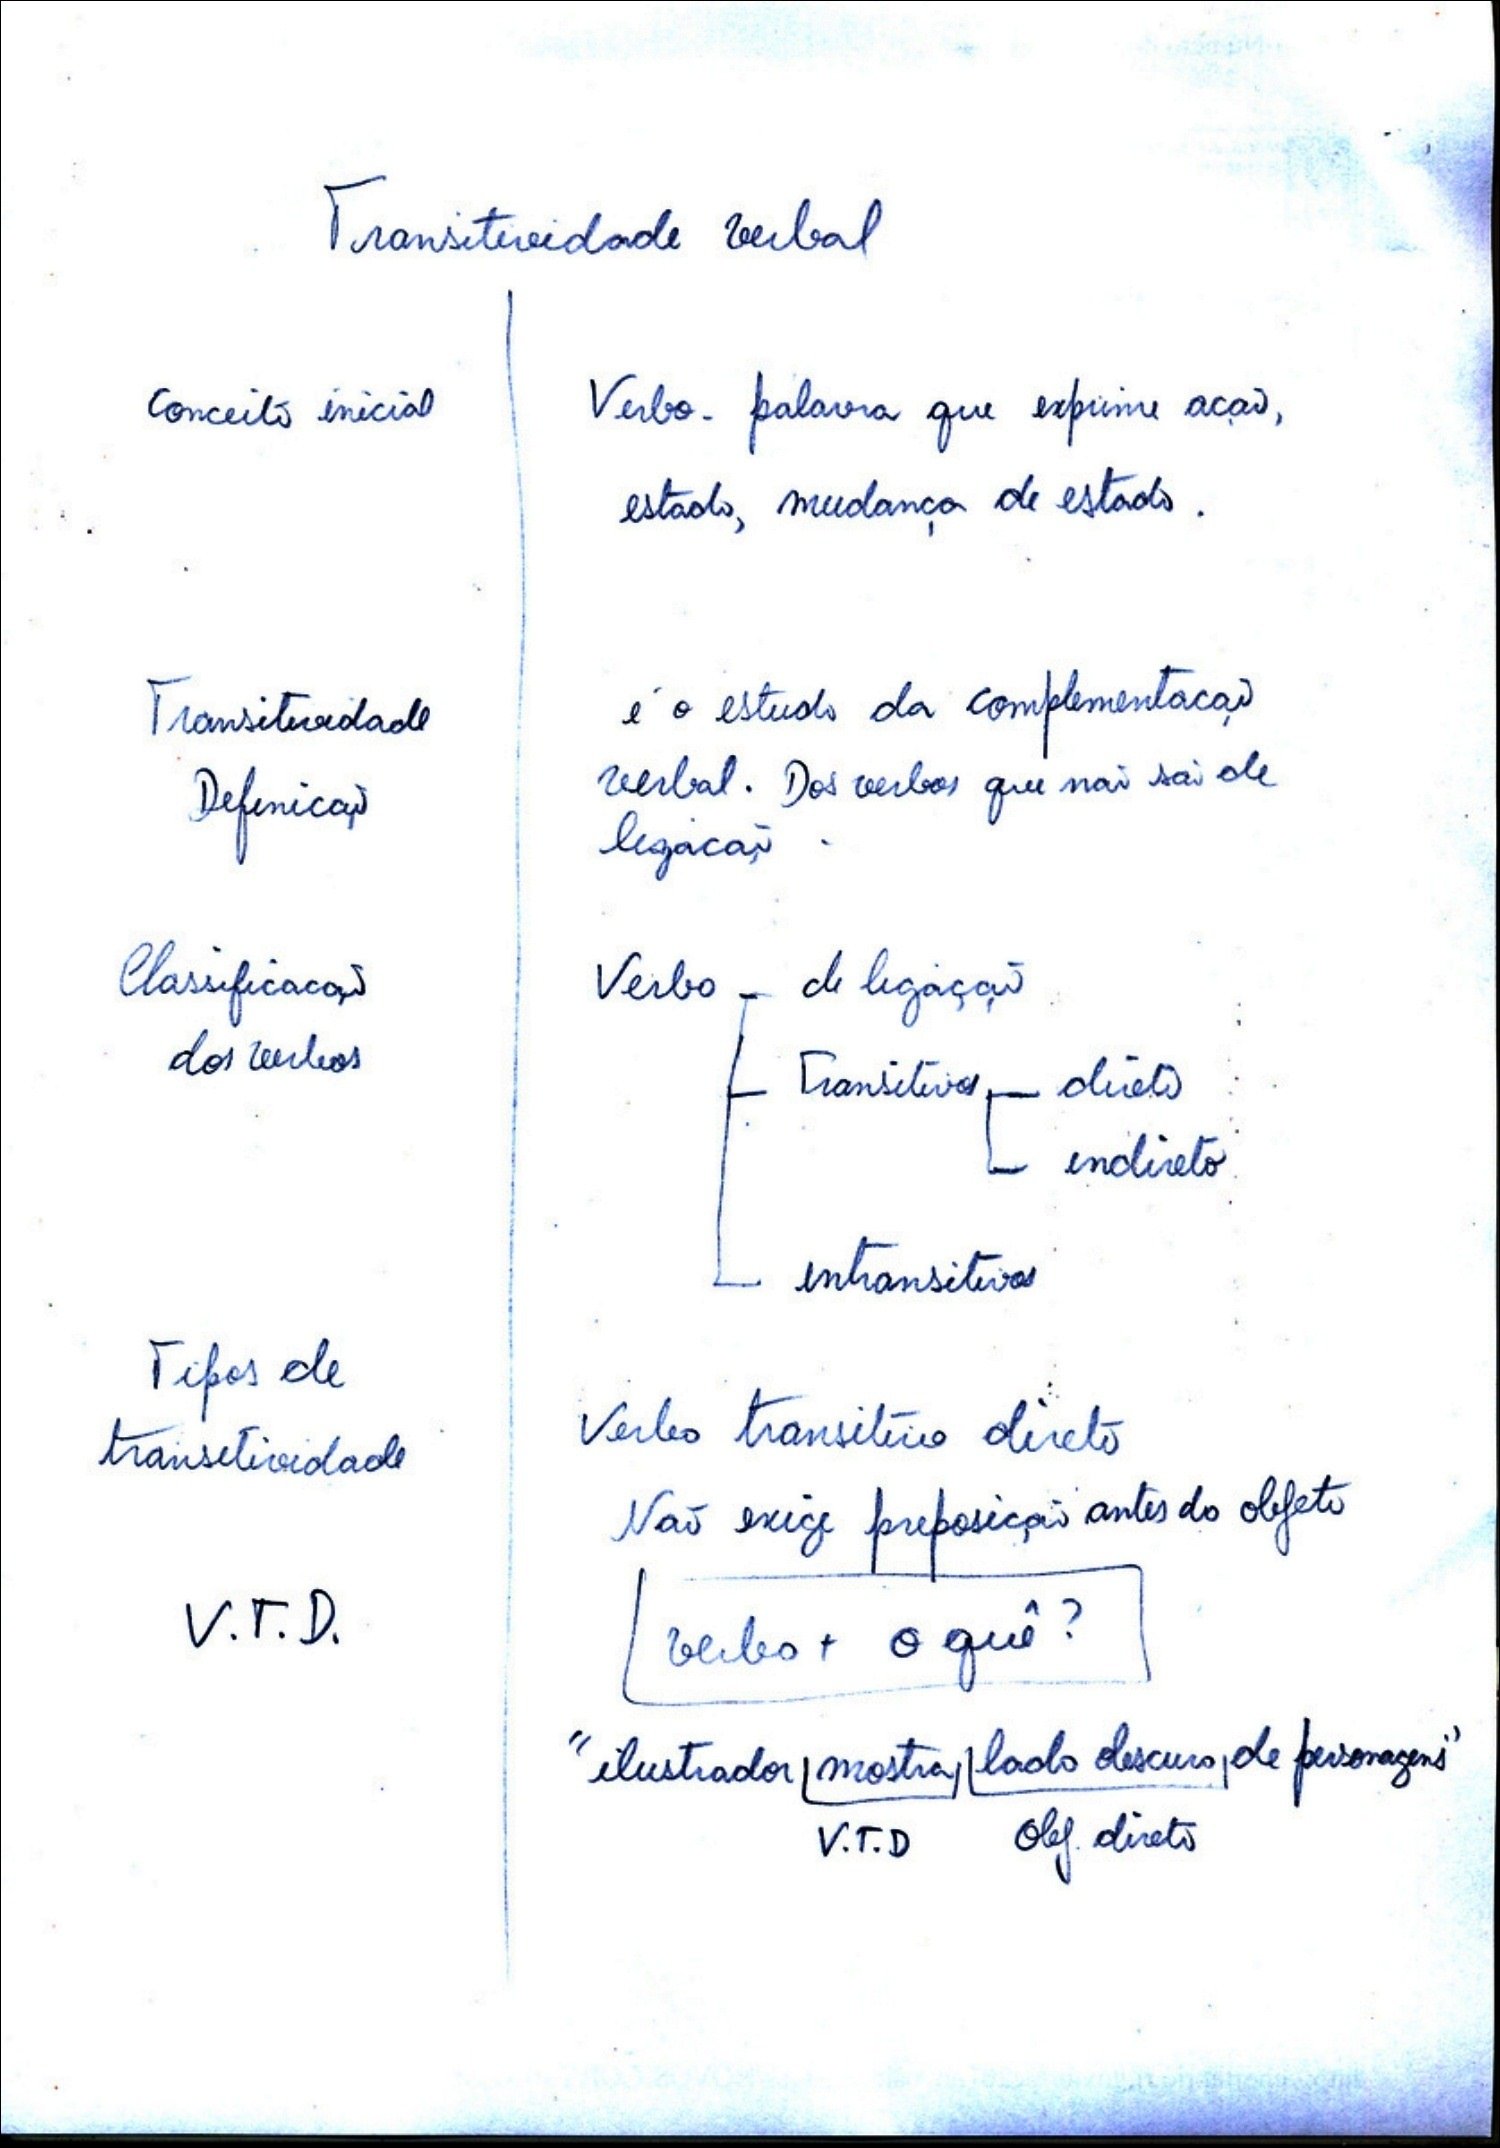 Transitividade verbal
Conceito inicial
Verbo - palavra que exprime ação,
estado, mudança de estado.
Transitividade
Definição
é o estudo da complementação
verbal. Dos verbos que não são de
ligação.
Classificação
dos verbos
Verbo - de ligação
Transitivos - direto
indireto
intransitivos
Tipos de
transitividade
Verbo transitivo direto
Não exige preposição antes do objeto
V.T.D.
verbo + o quê?
"ilustrador mostra lado obscuro de personagens"
V.T.D
Obj. direto